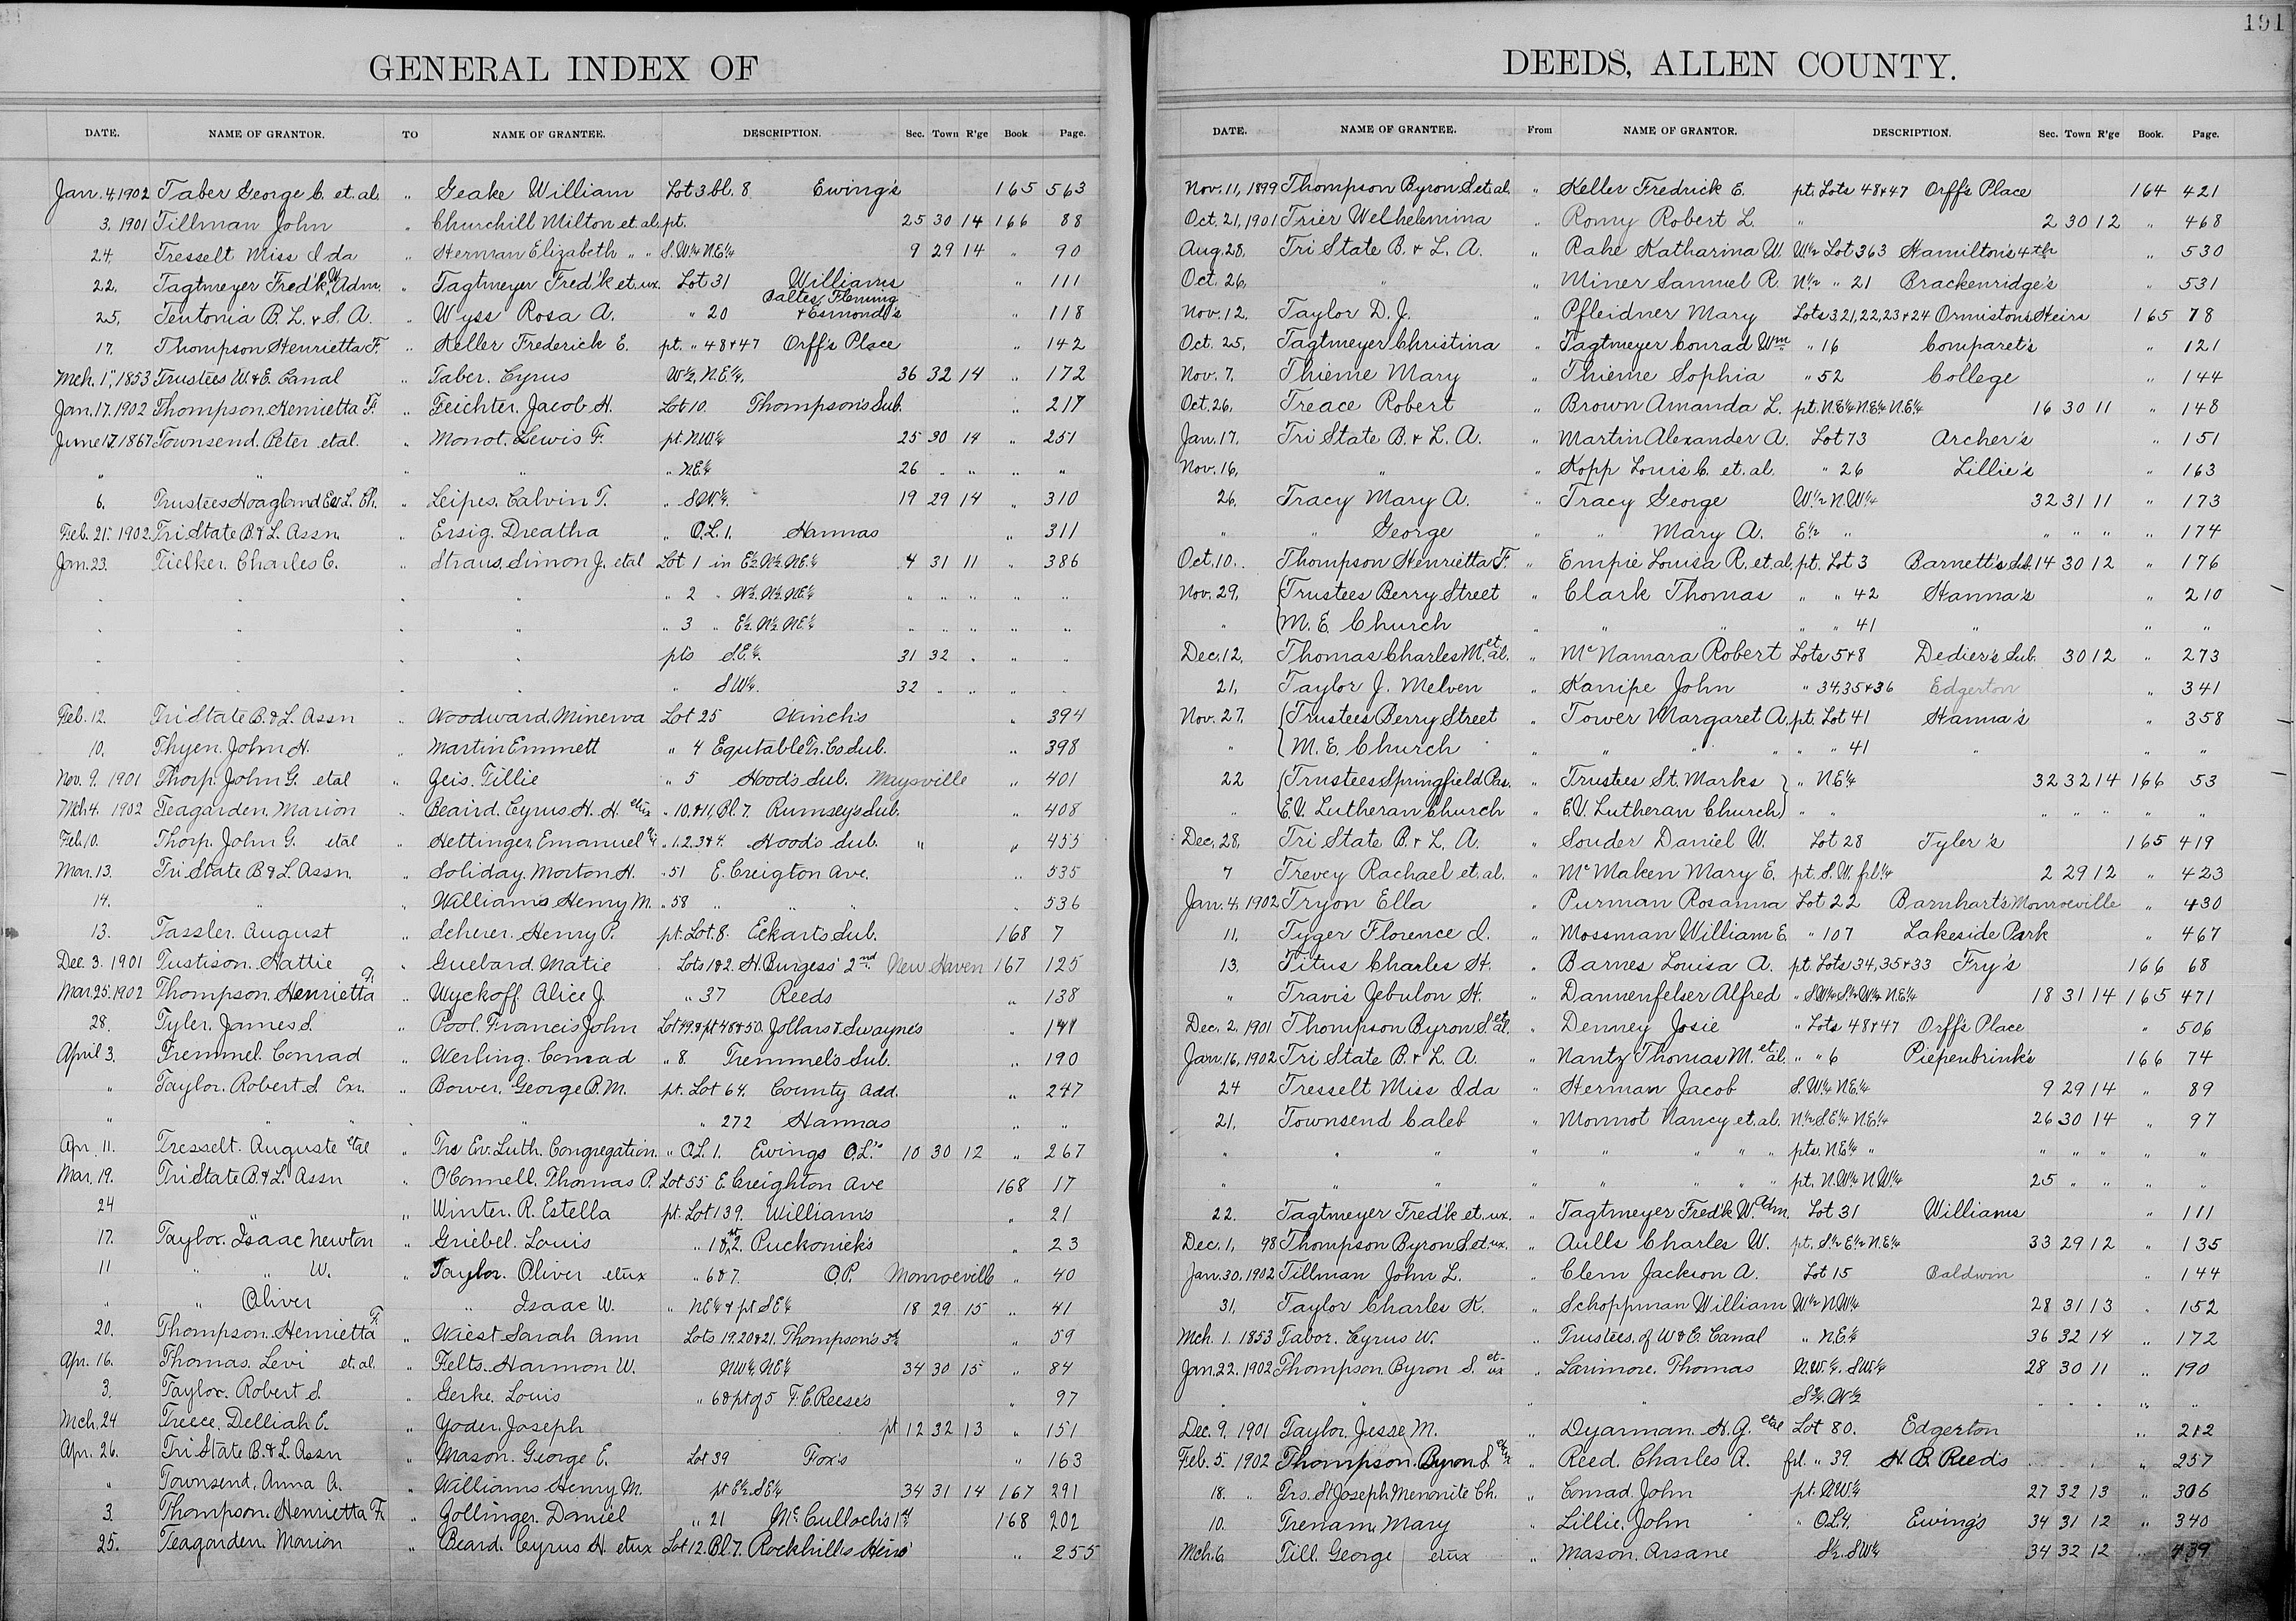 191
GENERAL INDEX OF
DATE. NAME OF GRANTOR. TO NAME OF GRANTEE. DESCRIPTION. Sec. Town R'ge Book Page.
Jan. 4, 1902 Taber George C. et. al. " Geake William Lot 3 bl. 8 Ewing's 165 563
3, 1901 Tillman John " Churchill Milton et. al. pt. 25 30 14 166 88
24, Tresselt Miss Ida " Herman Elizabeth " " S.W¼ N.E¼ 9 29 14 " 90
22, Tagtmeyer Fred'k W Adm. " Tagtmeyer Fred'k et. ux. Lot 31 Williams " 111
25, Teutonia B. L. & S. A. " Wyss Rosa A. " 20 Baltes, Fleming & Esmond's " 118
17. Thompson Henrietta F. " Keller Frederick E. pt. " 48 & 47 Orff's Place " 142
Mch. 1", 1853 Trustees W. & E. Canal " Taber. Cyrus W½. N.E¼. 36 32 14 " 172
Jan. 17. 1902 Thompson. Henrietta F. " Feichter. Jacob H. Lot 10. Thompson's Sub. " 217
June 17. 1867 Townsend. Peter etal. " Monot. Lewis F. pt. N.W¼ 25 30 14 " 251
" " " " " N.E¼ 26 " " " "
6. Trustees Hoagland Ev. L. Ch. " Leipes. Calvin T. " S.W¼. 19 29 14 " 310
Feb. 21. 1902. Tri State B. & L. Assn. " Ersig. Dreatha " O.L. 1. Hannas " 311
Jan. 23. Tielker. Charles C. " Straus. Simon J. etal Lot 1 in E½ N½ NE¼ 4 31 11 " 386
" " " " " 2 " W½. N½. NE¼ " " " " "
" " " " " 3 " E½. N½. NE¼ " " " " "
" " " " pts S.E¼. 31 32 " " "
" " " " " SW¼. 32 " " " "
Feb. 12. Tri State B. & L. Assn " Woodward. Minerva Lot 25 Winch's " 394
10. Thyen. John H. " Martin Emmett " 4 Equtable Tr. Co. Sub. " 398
Nov. 9. 1901 Thorp. John G. etal " Geis. Tillie " 5 Hood's Sub. Maysville " 401
Mch 4. 1902 Teagarden. Marion " Beaird. Cyrus H. H. etux " 10. & 11, Bl. 7. Rumsey's Sub. " 408
Feb. 10. Thorp. John G. etal " Hettinger. Emanuel " 1. 2. 3 & 4. Hood's Sub. " " 455
Mar. 13. Tri State B & L. Assn. " Soliday. Morton H. " 51 E. Creigton Ave. " 535
14. " " Williams Henry M. " 58 " " " " 536
13. Tassler. August " Scherer. Henry P. pt. Lot 8. Eckarts Sub. 168 7
Dec. 3. 1901 Tustison. Hattie " Guebard. Matie Lots 1 & 2. H. Burgess' 2nd. New Haven 167 125
Mar. 25. 1902 Thompson. Henrietta F. " Wyckoff. Alice J. " 37 Reeds " 138
28. Tyler. James S. " Pool. Francis John Lot 49. & pt 48 & 50. Jollars & Swayne's " 141
April 3. Tremmel. Conrad " Werling. Conrad " 8. Tremmel's Sub. " 190
" Taylor. Robert S Exr. " Bower. George B. M. pt. Lot 64. County Add. " 247
" " " " " " 272 Hannas " "
Apr. 11. Tresselt. Auguste etal " Trs Ev. Luth. Congregation. " O.L. 1. Ewings O.L.'s 10 30 12 " 267
Mar. 19. Tri State B. & L. Assn " O'Connell. Thomas P. Lot 55 E. Creighton Ave 168 17
24 " " Winter. R. Estella pt. Lot 139. William's " 21
17. Taylor. Isaac Newton " Griebel. Louis " 1 & 2. Puckonick's " 23
11 " " W. " Taylor. Oliver etux " 6 & 7. O.P. Monroeville " 40
" " Oliver " Isaac W. " NE¼ & pt SE¼ 18 29 15 " 41
20. Thompson. Henrietta F. " Wiest Sarah Ann Lots 19. 20 & 21. Thompson's 3rd " 59
Apr. 16. Thomas. Levi et. al. " Felts. Harmon W. NW¼ NE¼ 34 30 15 " 84
3. Taylor. Robert S. " Gerke. Louis " 6 & pt of 5 F. C. Reese's " 97
Mch. 24 Treece. Delliah E. " Yoder. Joseph pt 12 32 13 " 151
Apr. 26. Tri State B. & L. Assn " Mason. George E. Lot 39 Fox's " 163
" Townsend. Anna A. " Williams Henry M. pt E½. SE¼ 34 31 14 167 291
3. Thompson. Henrietta F. " Zollinger. Daniel " 21 McCulloch's 1st 168 202
25. Teagarden. Marion " Beard. Cyrus H. etux Lot 12. Bl. 7. Rockhill's Heirs' " 255
DEEDS, ALLEN COUNTY.
DATE. NAME OF GRANTEE. From NAME OF GRANTOR. DESCRIPTION. Sec. Town R'ge Book. Page.
Nov. 11, 1899 Thompson Byron S. et. al. " Keller Fredrick E. pt. Lots 48 & 47 Orff's Place 164 421
Oct. 21, 1901 Trier Welhelemina " Romy Robert L. " 2 30 12 " 468
Aug. 28, Tri State B. & L. A. " Rahe Katharina W. W½ Lot 363 Hamilton's 4th " 530
Oct. 26, " " Miner Samuel R. N½ " 21 Brackenridge's " 531
Nov. 12, Taylor D. J. " Pfleidner Mary Lots 321, 22, 23 & 24 Ormistons Heirs 165 78
Oct. 25, Tagtmeyer Christina " Tagtmeyer Conrad Wm " 16 Comparet's " 121
Nov. 7, Thieme Mary " Thieme Sophia " 52 College " 144
Oct. 26, Treace Robert " Brown Amanda L. pt. N.E¼ N.E¼ N.E¼ 16 30 11 " 148
Jan. 17, Tri State B. & L. A. " Martin Alexander A. Lot 73 Archer's " 151
Nov. 16, " " Kopp Louis C. et. al. " 26 Lillie's " 163
26, Tracy Mary A. " Tracy George W½ N.W¼ 32 31 11 " 173
" " George " " Mary A. E½ " " " " " 174
Oct. 10. Thompson Henrietta F. " Empie Louisa R. et. al. pt. Lot 3 Barnett's Sub. 14 30 12 " 176
Nov. 29, Trustees Berry Street " Clark Thomas " " 42 Hanna's " 210
" M. E. Church " " " " " 41 " " "
Dec. 12, Thomas Charles M. et al. " McNamara Robert Lots 5 & 8 Dedier's Sub. 30 12 " 273
21, Taylor J. Melven " Kanipe John " 34, 35 & 36 Edgerton " 341
Nov. 27, Trustees Berry Street " Tower Margaret A. pt. Lot 41 Hanna's " 358
" M. E. Church " " " " " " 41 " " "
22 Trustees Springfield Pas. " Trustees St. Marks " N.E¼ 32 32 14 166 53
" E.V. Lutheran Church " E.V. Lutheran Church " " " " " " "
Dec. 28, Tri State B. & L. A. " Souder Daniel W. Lot 28 Tyler's 165 419
7 Trevey Rachael et. al. " McMaken Mary E. pt. S. W. frl ¼ 2 29 12 " 423
Jan. 4, 1902 Tryon Ella " Purman Rosanna Lot 22 Barnhart's Monroeville " 430
11, Tyger Florence I. " Mossman William E. " 107 Lakeside Park " 467
13, Titus Charles H. " Barnes Louisa A. pt. Lots 34, 35 & 33 Fry's 166 68
" Travis Zebulon H. " Dannenfelser Alfred " S.W¼ S½ W½ N.E¼ 18 31 14 165 471
Dec. 2, 1901 Thompson Byron S. et al. " Denney Josie " Lots 48 & 47 Orff's Place " 506
Jan. 16, 1902 Tri State B. & L. A. " Nantz Thomas M. et al. " " 6 Piepenbrink's 166 74
24 Tresselt Miss Ida " Herman Jacob S. W¼ N.E¼ 9 29 14 " 89
21, Townsend Caleb " Monnot Nancy et. al. N½ S.E¼ N.E¼ 26 30 14 " 97
" " " " " " " pts. N.E¼ " " " " " "
" " " " " " " pt. N.W¼ N.W¼ 25 " " " "
22. Tagtmeyer Fred'k et. ux. " Tagtmeyer Fred'k W. Adm. Lot 31 Williams " 111
Dec. 1, 98 Thompson Byron S. et. ux. " Aulls Charles W. pt. S½ E½ N.E¼ 33 29 12 " 135
Jan. 30, 1902 Tillman John L. " Clem Jackson A. Lot 15 Baldwin " 144
31, Taylor Charles K. " Schoppman William W½ N.W¼ 28 31 13 " 152
Mch. 1. 1853 Tabor. Cyrus W. " Trustees. of W & E. Canal " N.E¼ 36 32 14 " 172
Jan. 22. 1902 Thompson. Byron S. et ux " Larimore. Thomas N.W.¼. SW¼ 28 30 11 " 190
" " " " W½ " " " " "
Dec. 9. 1901 Taylor. Jesse M. " Dyarman. H. G. etal Lot 80. Edgerton " 212
Feb. 5. 1902 Thompson. Byron S. etux " Reed. Charles A. frl. " 39. H. B. Reed's " 257
18. " Trs. St Joseph Menonite Ch. " Conrad. John pt. NW¼ 27 32 13 " 306
10. Trenam. Mary " Lillie. John " O.L. 4. Ewing's 34 31 12 " 340
Mch. 6. Till. George etux " Mason. Arsane S½. SW¼ 34 32 12 " 439